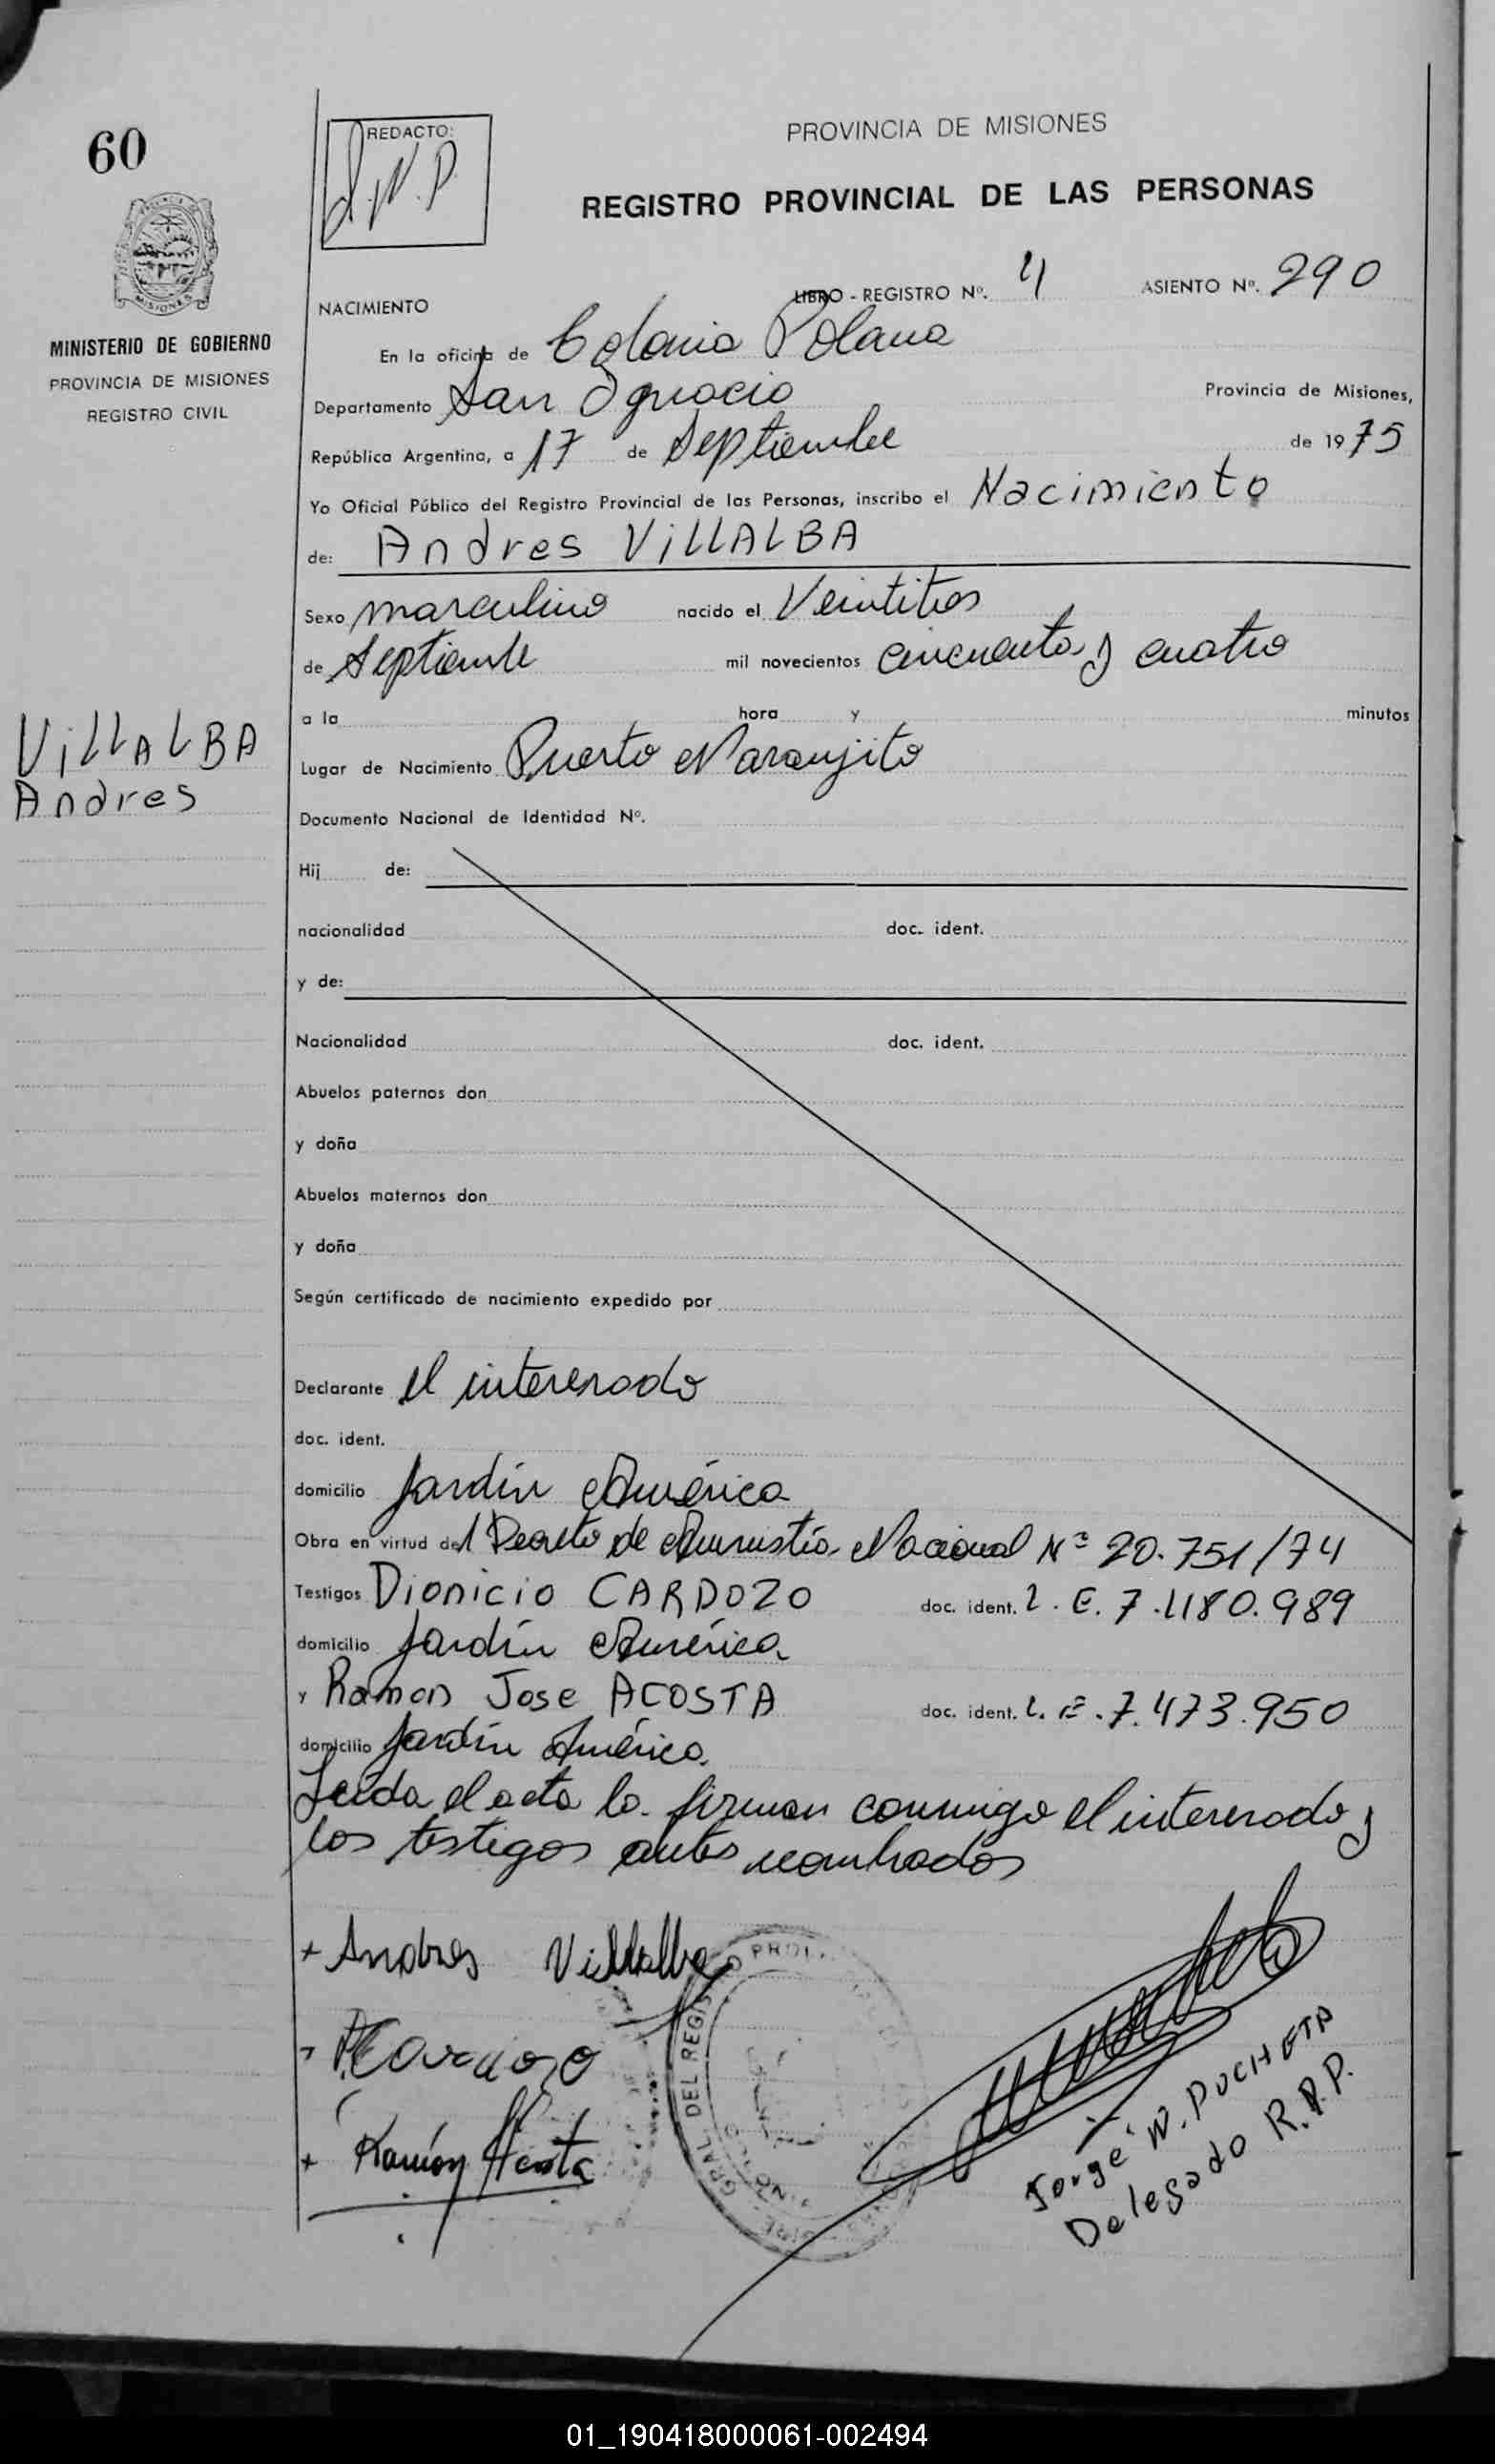 60
REDACTO:
J.N.D.
PROVINCIA DE MISIONES
REGISTRO PROVINCIAL DE LAS PERSONAS
MISIONES
MINISTERIO DE GOBIERNO
PROVINCIA DE MISIONES
REGISTRO CIVIL
NACIMIENTO LIBRO - REGISTRO Nº. 4 ASIENTO Nº. 290
En la oficina de Colonia Polana
Departamento San Ignacio Provincia de Misiones,
República Argentina, a 17 de Septiembre de 1975
Yo Oficial Público del Registro Provincial de las Personas, inscribo el Nacimiento
de: Andres VILLALBA
Sexo masculino nacido el Veintitres
de Septiembre mil novecientos cincuenta y cuatro
a la hora y minutos
VILLALBA
Andres
Lugar de Nacimiento Puerto Naranjito
Documento Nacional de Identidad Nº.
Hij de:
nacionalidad doc. ident.
y de:
Nacionalidad doc. ident.
Abuelos paternos don
y doña
Abuelos maternos don
y doña
Según certificado de nacimiento expedido por
Declarante el interesado
doc. ident.
domicilio Jardín América
Obra en virtud del Decreto de Amnistía Nacional Nº 20.751/74
Testigos Dionicio CARDOZO doc. ident. L.E. 7.480.989
domicilio Jardín América
y Ramon Jose ACOSTA doc. ident. L.E. 7.473.950
domicilio Jardín América.
Leida el acta la firman conmigo el interesado y
los testigos antes nombrados
+ Andres Villalba
Ramón Acosta
DEL REGIS
GRAL
Jorge W. DUCHETA
Delegado R.P.P.
01_190418000061-002494